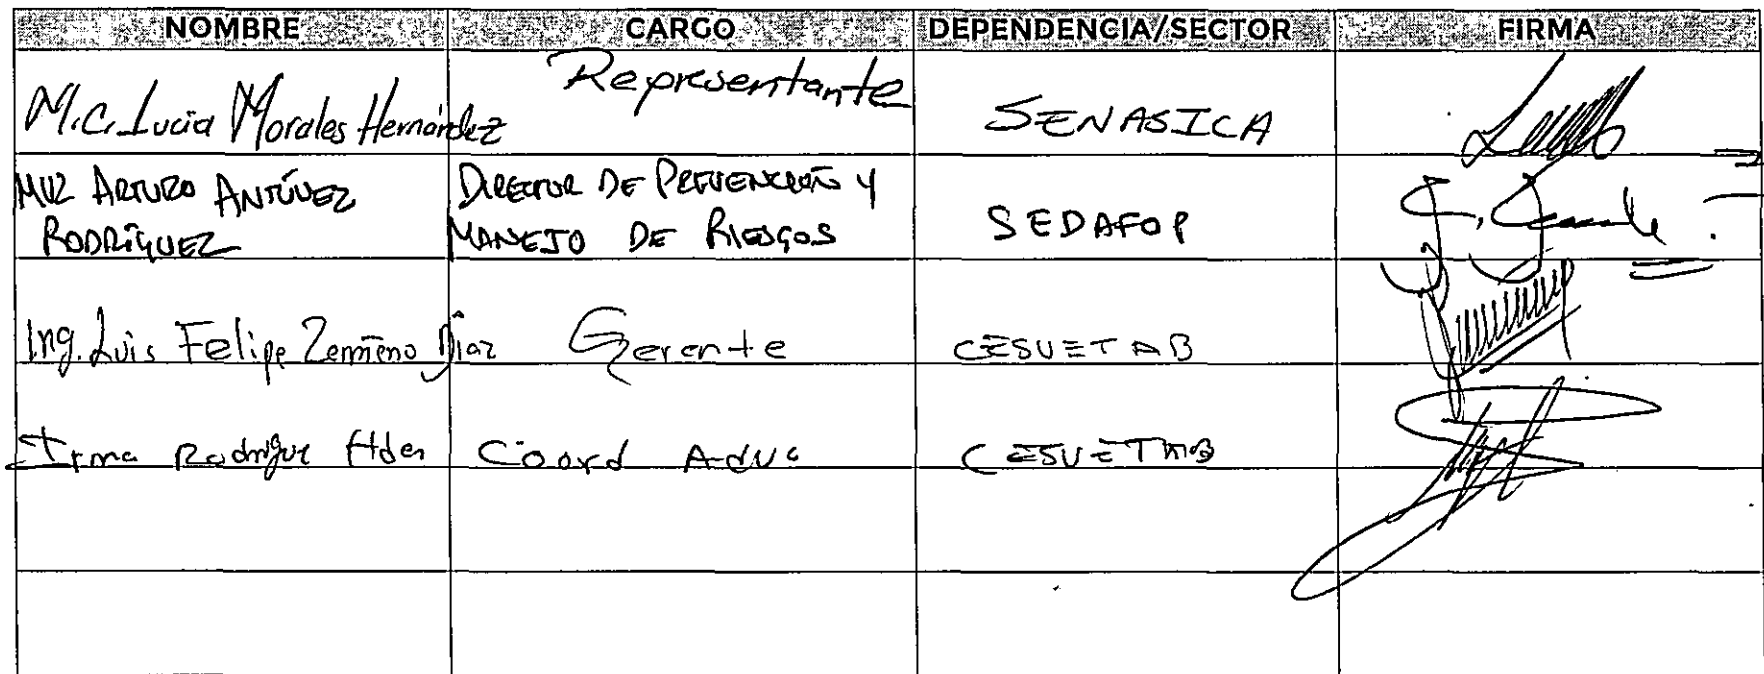 NOMBRE CARGO DEPENDENCIA/SECTOR FIRMA
M.C. Lucia Morales Hernández Representante SENASICA
MVZ ARTURO ANTÚNEZ DIRECTOR DE PREVENCIÓN Y
RODRÍGUEZ MANEJO DE RIESGOS SEDAFOP
Ing. Luis Felipe Zermeño Díaz Gerente CESVETAB
Irma Rodrígue Hder Coord CESVETAB